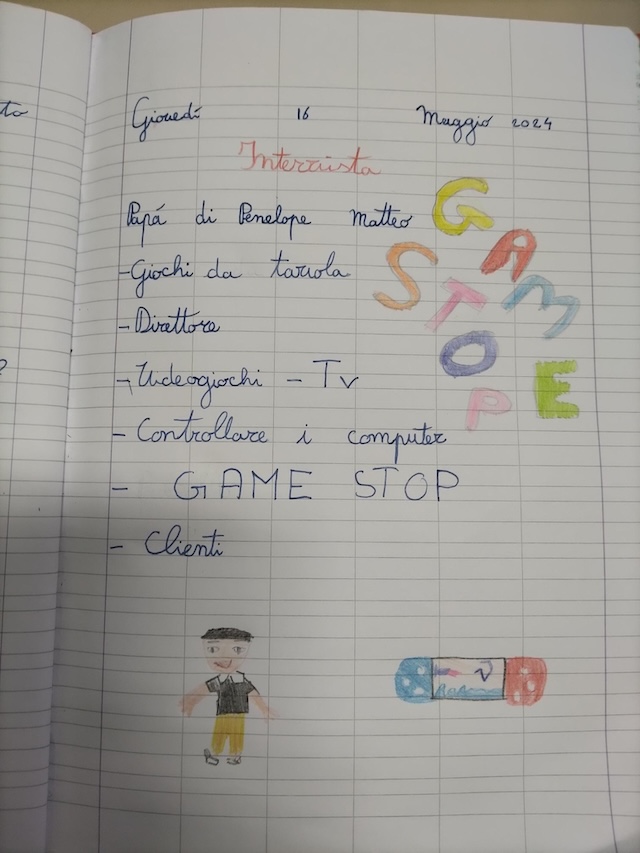 to
Giovedí 16 Maggio 2024
Intervista
Papá di Penelope Matteo
GAME
STOP
- Giochi da tavola
- Direttore
- Videogiochi - Tv
- Controllare i computer
- GAME STOP
- Clienti
?